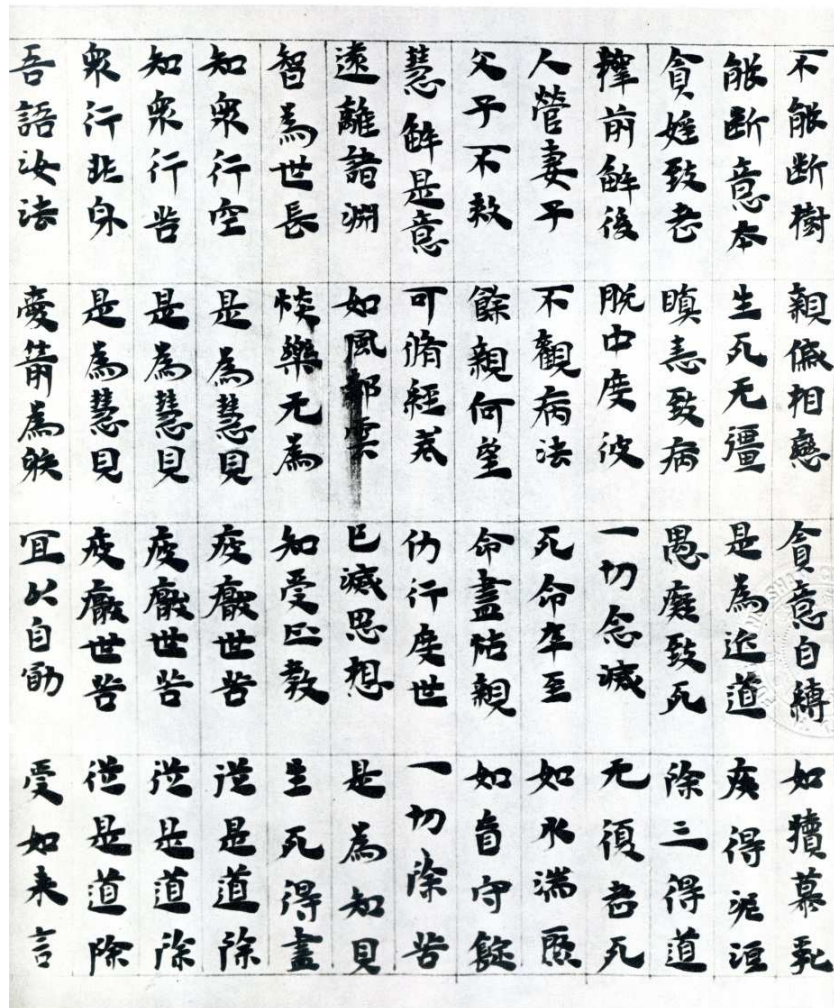 不能断樹 親慼相戀 貪意自縛 如犢慕乳
能断意本 生死无彊 是為近道 疾得泥洹
貪婬致老 瞋恚致病 愚癡致死 除三得道
釋前解後 脱中度彼 一切念滅 无復老死
人營妻子 不觀病法 死命卒至 如水湍驟
父子不救 餘親何望 命盡怙親 如盲守錠
慧解是意 可脩經戒 仂行度世 一切除苦
遠離諸淵 如風却雲 已滅思想 是為知見
智為世長 惔樂无為 知受正教 生死得盡
知衆行空 是為慧見 疲厭世苦 從是道除
知衆行苦 是為慧見 疲厭世苦 從是道除
衆行非身 是為慧見 疲厭世苦 從是道除
吾語汝法 愛箭為射 宜以自勖 受如来言